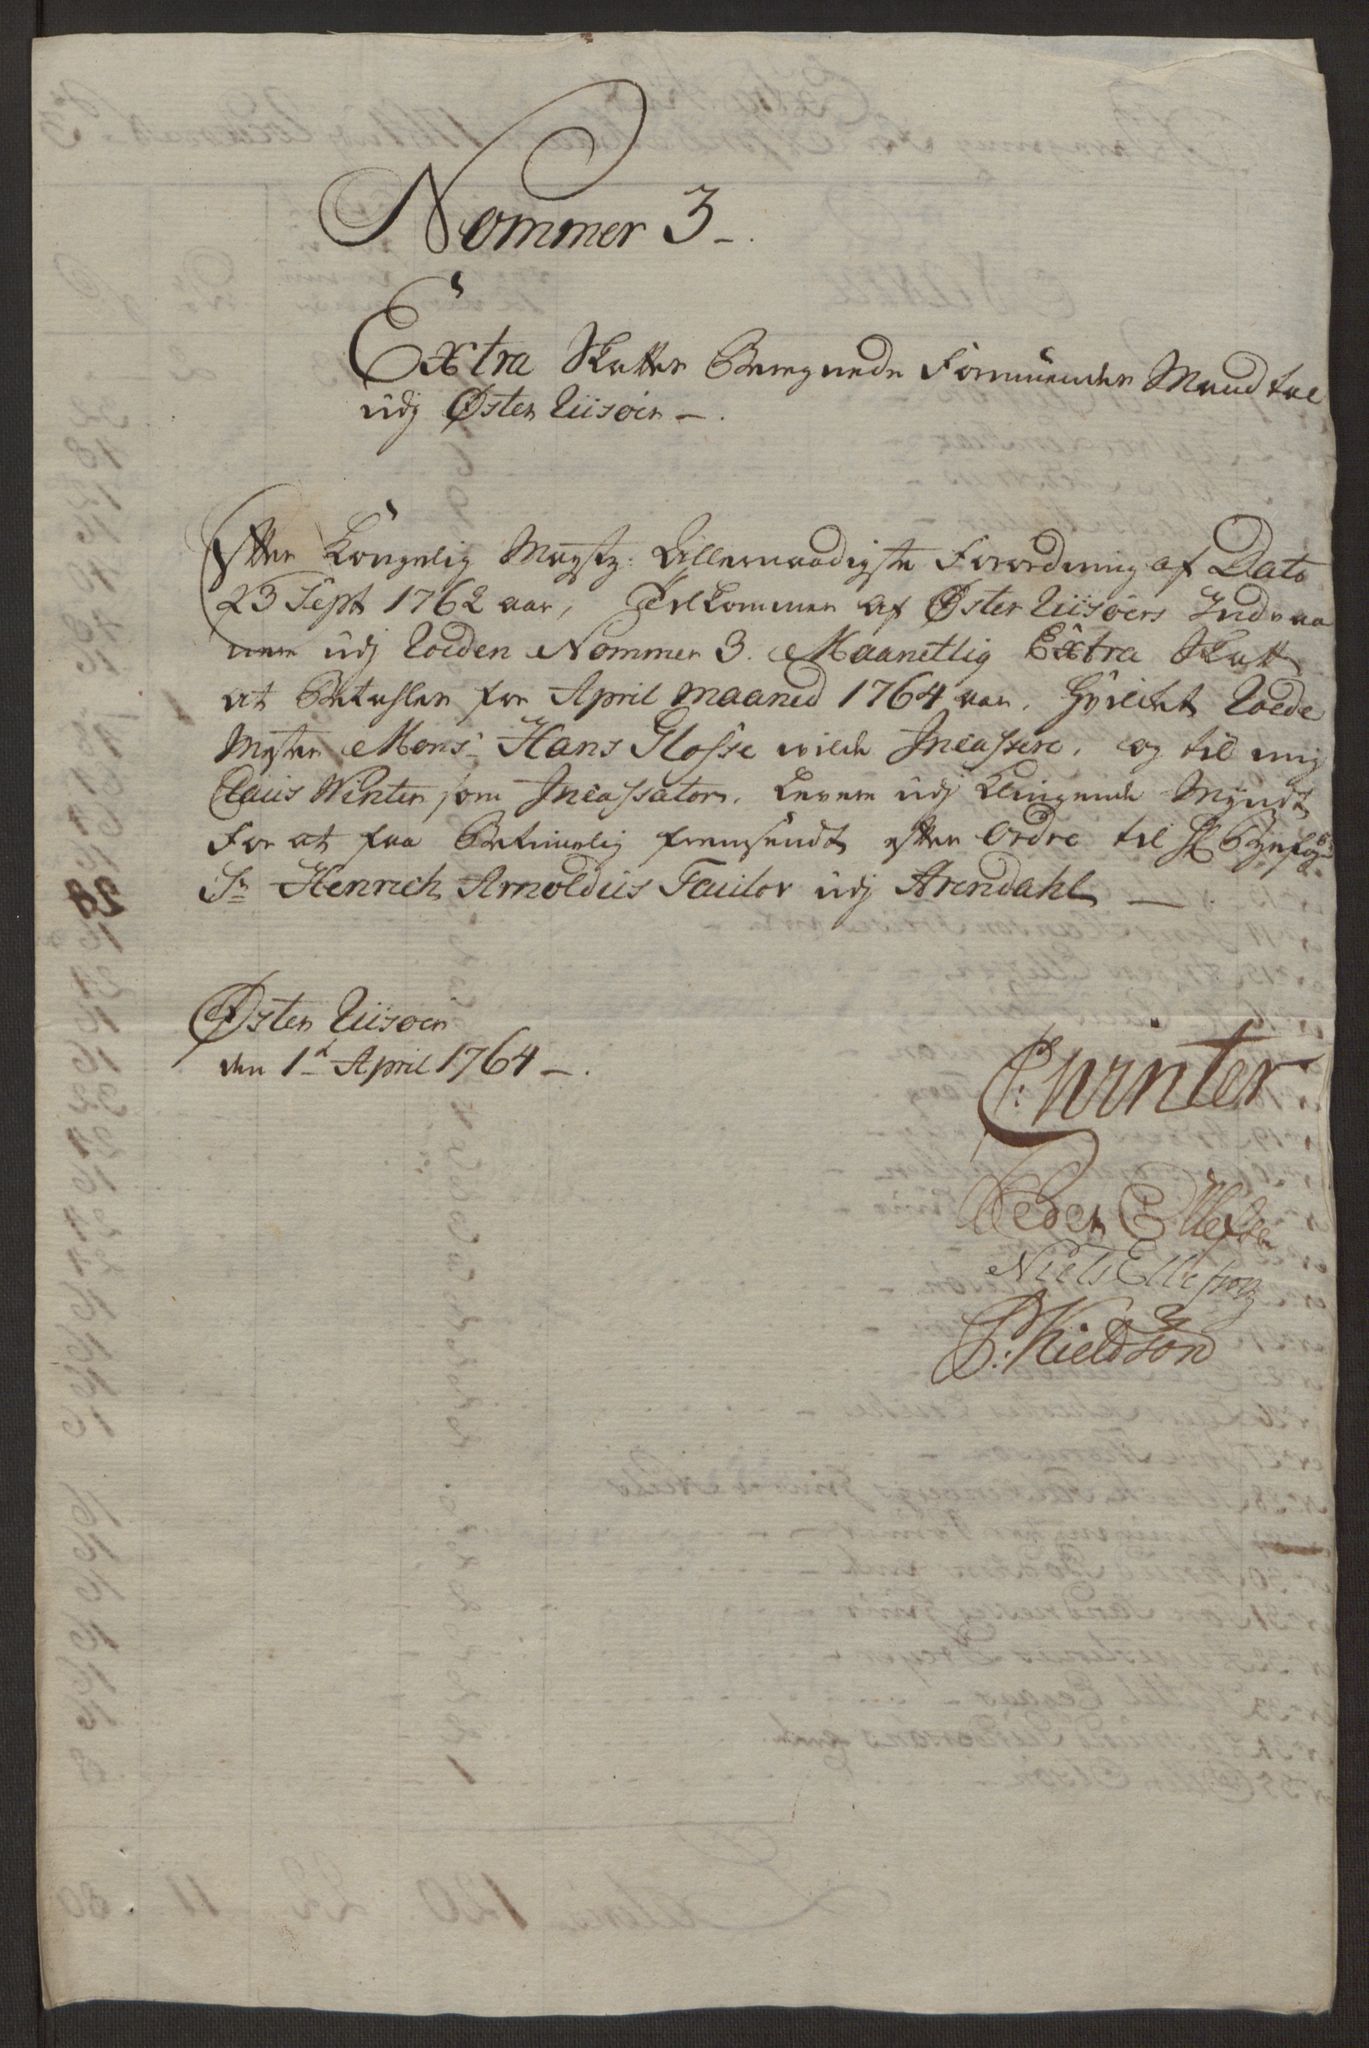 Nommer 3.
Extra Skatter Beregnede Formuender Mandtal
udj Øster Riisøer.
Efter Kongelig Mayſtz: Allernaadigste Forordning af Dato
23 Sept 1762 aar, Tilkommer af Øster Riisøers Indvaa
nere udj Roden Nommer 3. Maanetlig Extra Skatt
at Betahler for April Maaned 1764 aar, Hvilcket Rode
Mester Mons. Hans Glosse vilde Incassere, og til mig
Claus Winter som Incassator, levere udj Klingende Myndt
for at faa Betimelig fremsendt efter Ordre til Byefog
Sr. Henrich Arnoldus Faulor udj Arendahl
Øster Riisøer
den 1d April 1764
C: Winter
Peder Ellefsen
Niels Ellefsen
P. Kieldsøn